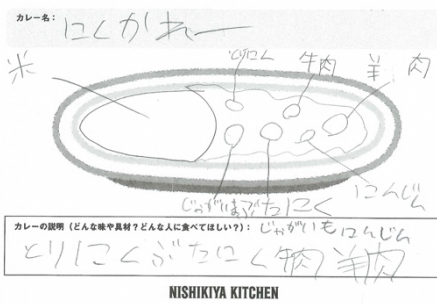 カレー名：
にくかれー
米
とりにく
牛肉
羊肉
じゃがいも
ぶたにく
にんじん
カレーの説明（どんな味や具材？どんな人に食べてほしい？）：じゃがいもにんじん
とりにくぶたにく牛肉羊肉
NISHIKIYA KITCHEN